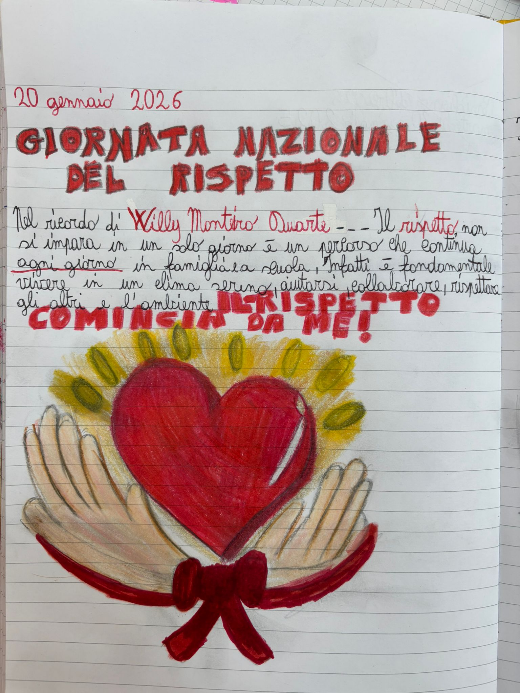 20 gennaio 2026
GIORNATA NAZIONALE
DEL RISPETTO
Nel ricordo di Willy Montéro Duarte --- Il rispetto non
si impara in un solo giorno è un percorso che continua
ogni giorno in famiglia e a scuola, Infatti è fondamentale
vivere in un clima sereno, aiutarsi, collaborare, rispettare
gli altri e l'ambiente. IL RISPETTO
COMINCIA DA ME!